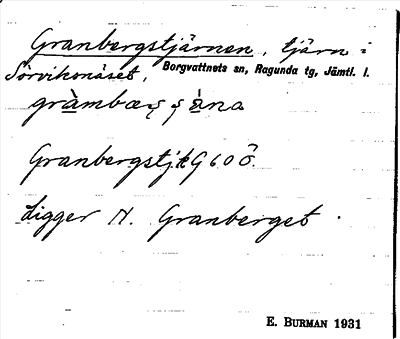 Granbergstjärnen, tjärn i
Sörvikenäset, Borgvattnets sn, Ragunda tg, Jämtl. l.
Granbergstj. G 60 Ö
Ligger N. Granberget.
E. BURMAN 1931